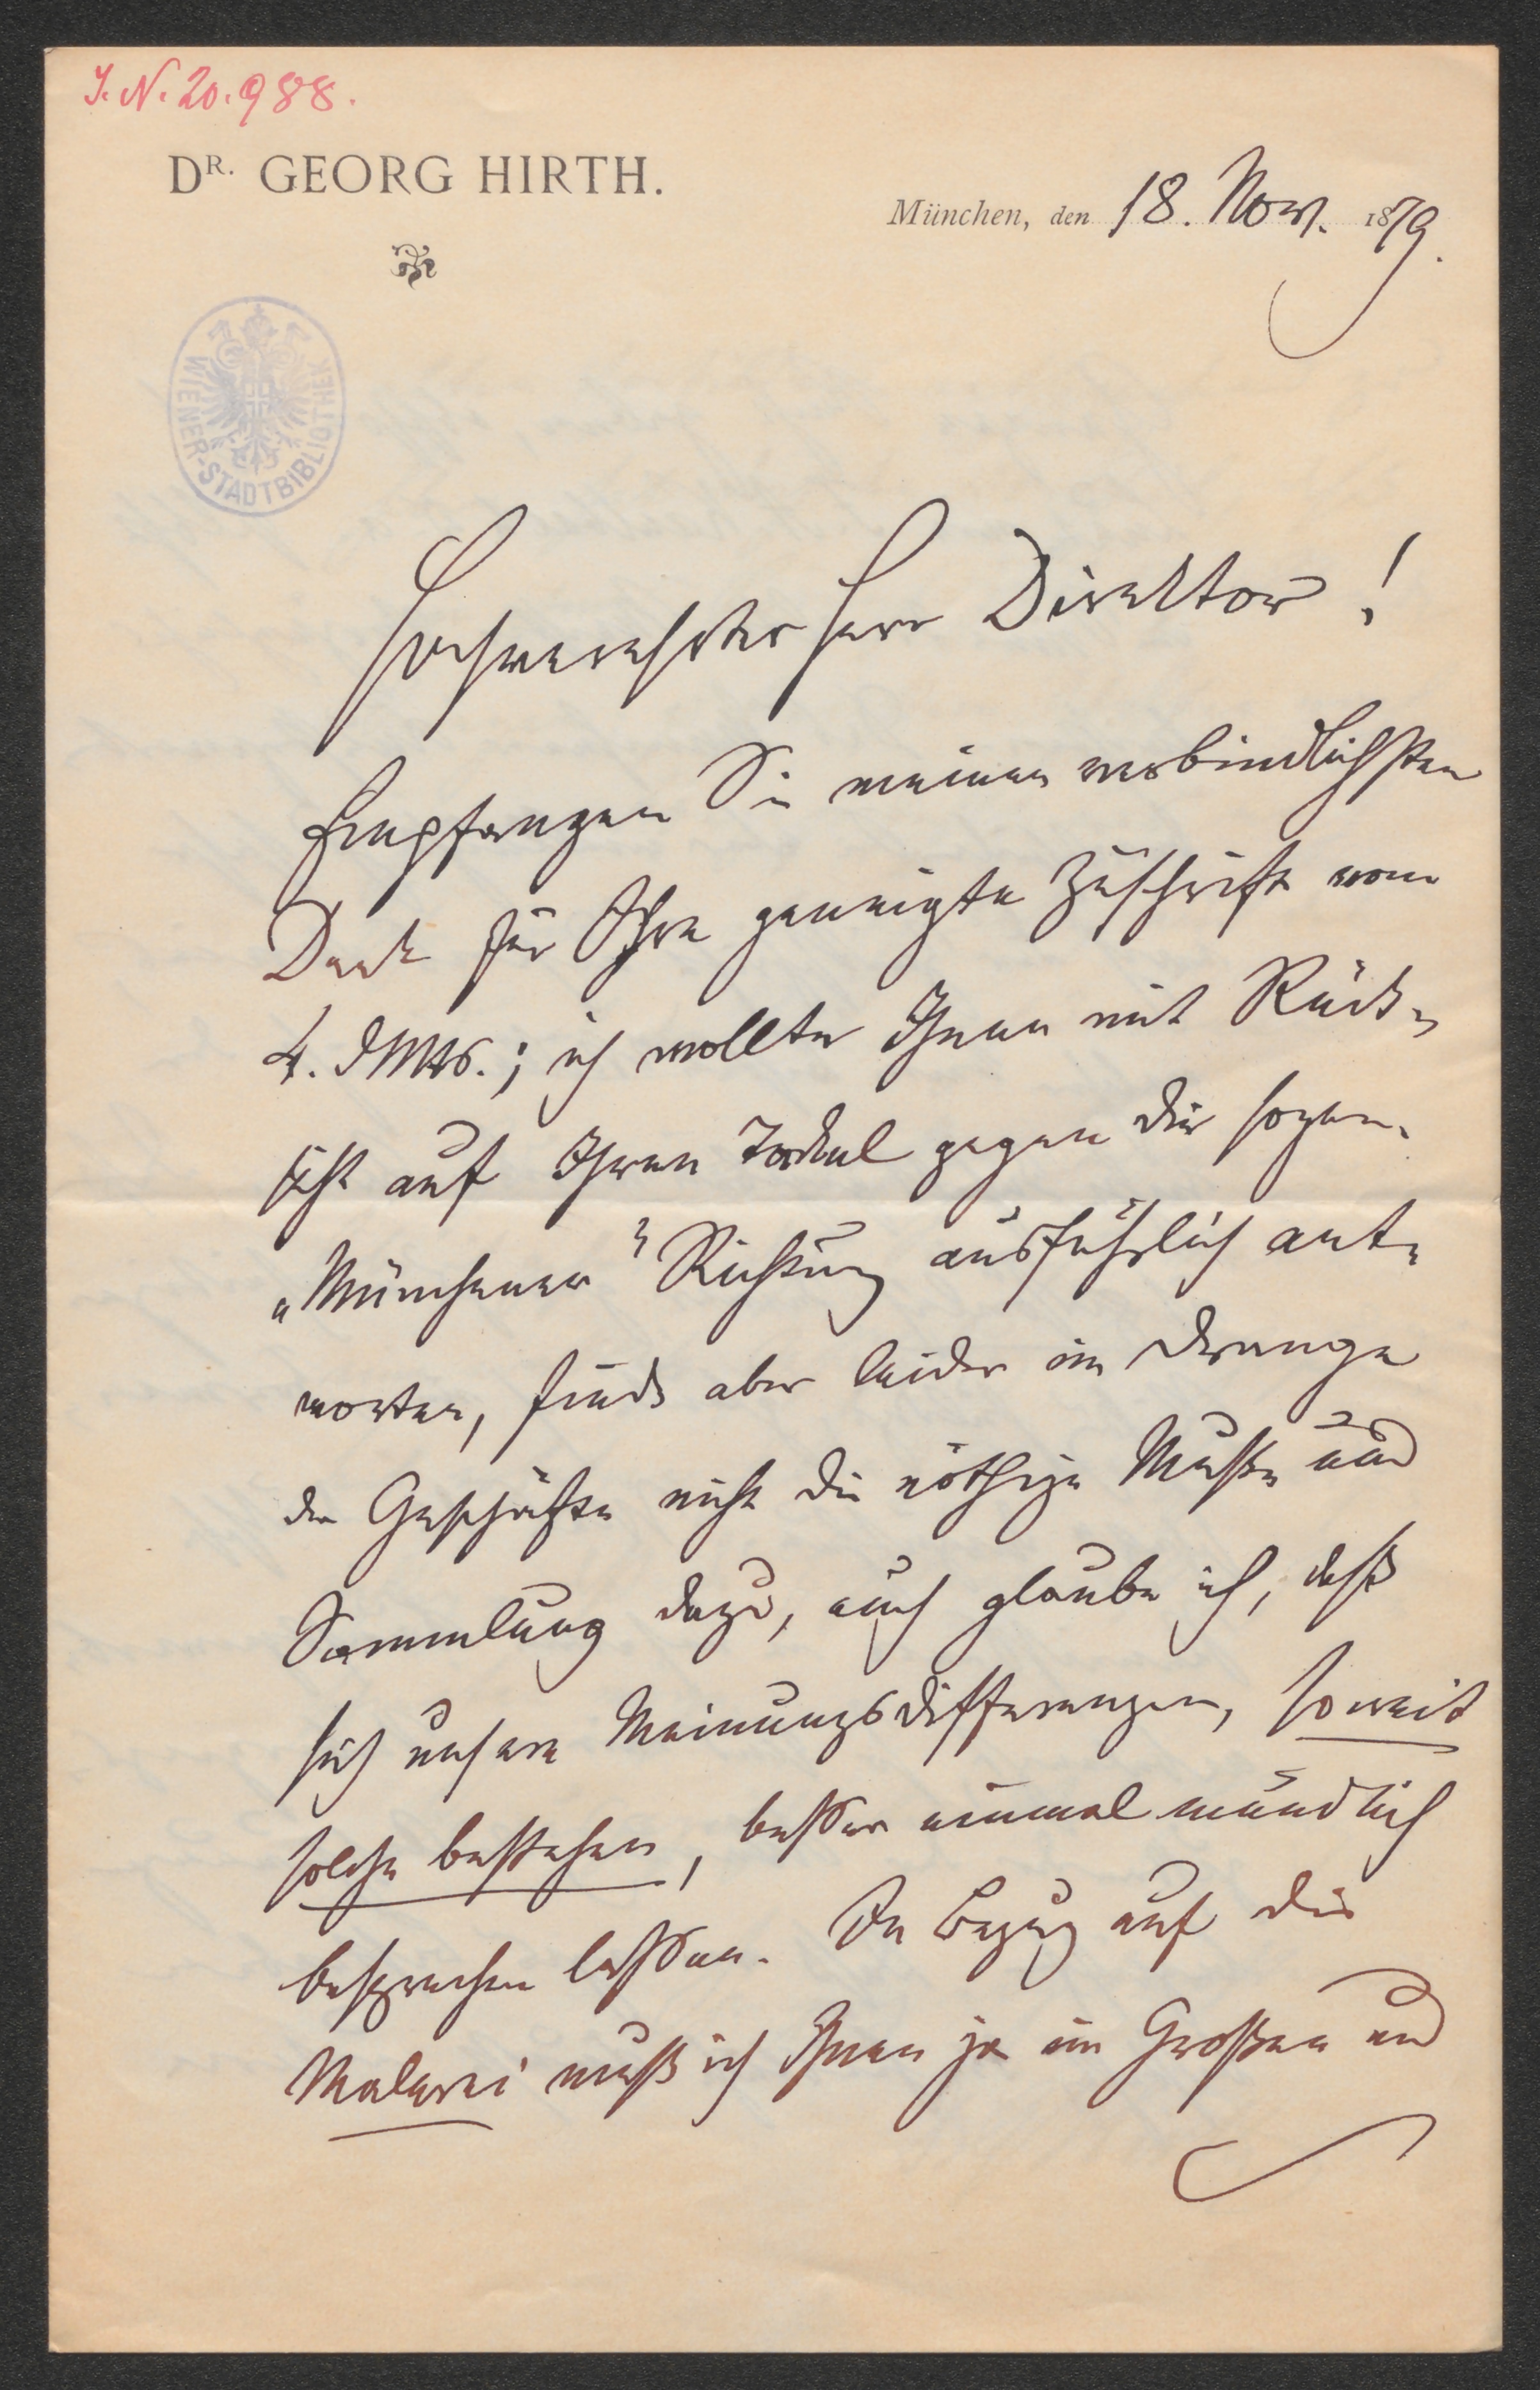 J. N. 20.988.
DR. GEORG HIRTH.
München, den 18. Nov. 1879.
WIENER-STADTBIBLIOTHEK
Hochverehrter Herr Direktor!
Empfangen Sie meinen verbindlichsten
Dank für Ihre geneigte Zuschrift vom
4. d Mts.; ich wollte Ihnen mit Rück-
sicht auf Ihren Tadel gegen die sogen.
„Münchener" Richtung ausführlich ant-
worten, finde aber leider im Drange
der Geschäfte nicht die nöthige Muße und
Sammlung dazu, auch glaube ich, daß
sich unsere Meinungsdifferenzen, soweit
solche bestehen, besser einmal mündlich
besprechen lassen. In Bezug auf die
Malerei muß ich Ihnen ja im Großen und